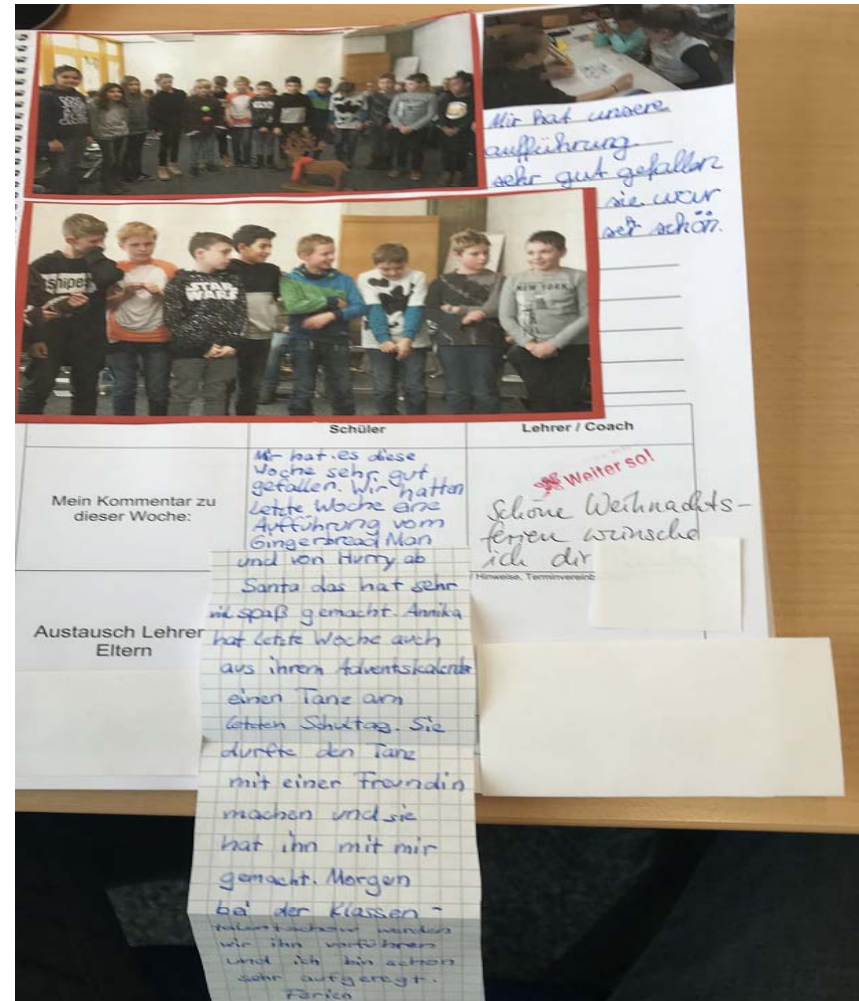 Mir hat unsere
aufführung
sehr gut gefallen
sie war
seh schön.
shipe
STAR
WARS
NEW YORK
Schüler
Lehrer / Coach
Mein Kommentar zu
dieser Woche:
Mir hat es diese
Woche sehr gut
gefallen. Wir hatten
Letzte Woche eine
Aufführung vom
Gingerbread Man
und von Hurry ab
Santa das hat sehr
viel spaß gemacht. Annika
hat letzte Woche auch
aus ihrem Adventskalender
einen Tanz am
letzten Schultag. Sie
durfte den Tanz
mit einer Freundin
machen und sie
hat ihn mit mir
gemacht. Morgen
bei der Klassen-
talentschow werden
wir ihn vorführen
und ich bin schon
sehr aufgeregt.
Ferien
Weiter so!
Schöne Weihnachts-
ferien wünsche
ich dir
/ Hinweise, Terminvereinb
Austausch Lehrer
Eltern